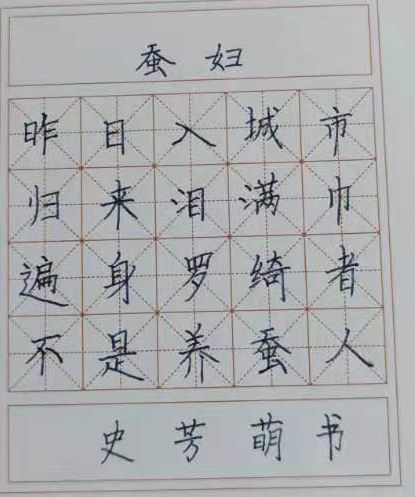 蚕妇
昨日入城市
归来泪满巾
遍身罗绮者
不是养蚕人
史芳萌书